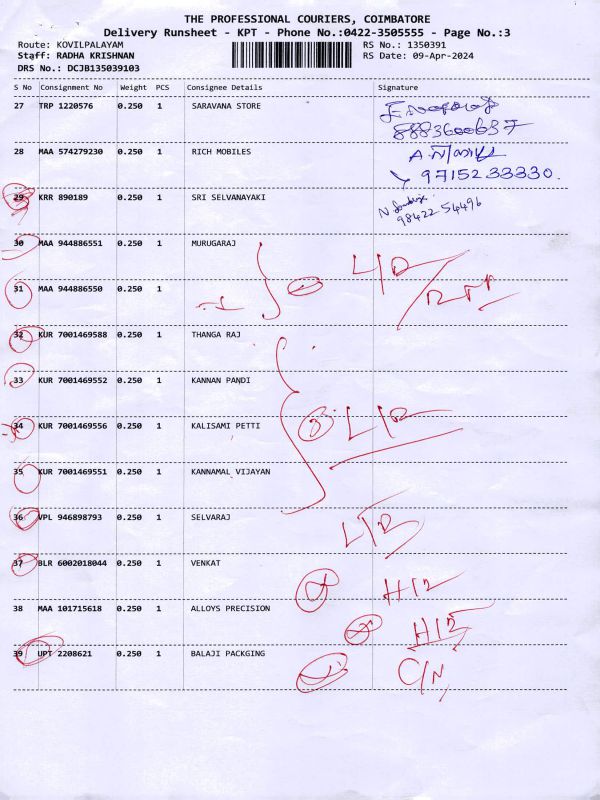 THE PROFESSIONAL COURIERS, COIMBATORE
Delivery Runsheet - KPT - Phone No.:0422-3505555 - Page No.:3
Route: KOVILPALAYAM RS No.: 1350391
Staff: RADHA KRISHNAN RS Date: 09-Apr-2024
DRS No.: DCJB135039103
S No Consignment No Weight PCS Consignee Details Signature
27 TRP 1220576 0.250 1 SARAVANA STORE
8883600637
28 MAA 574279230 0.250 1 RICH MOBILES
9715233330.
29 KRR 890189 0.250 1 SRI SELVANAYAKI
98422 54496
30 MAA 944886551 0.250 1 MURUGARAJ
31 MAA 944886550 0.250 1
32 KUR 7001469588 0.250 1 THANGA RAJ
33 KUR 7001469552 0.250 1 KANNAN PANDI
34 KUR 7001469556 0.250 1 KALISAMI PETTI
35 KUR 7001469551 0.250 1 KANNAMAL VIJAYAN
36 VPL 946898793 0.250 1 SELVARAJ
37 BLR 6002018044 0.250 1 VENKAT
38 MAA 101715618 0.250 1 ALLOYS PRECISION
39 UPT 2208621 0.250 1 BALAJI PACKGING
C/N